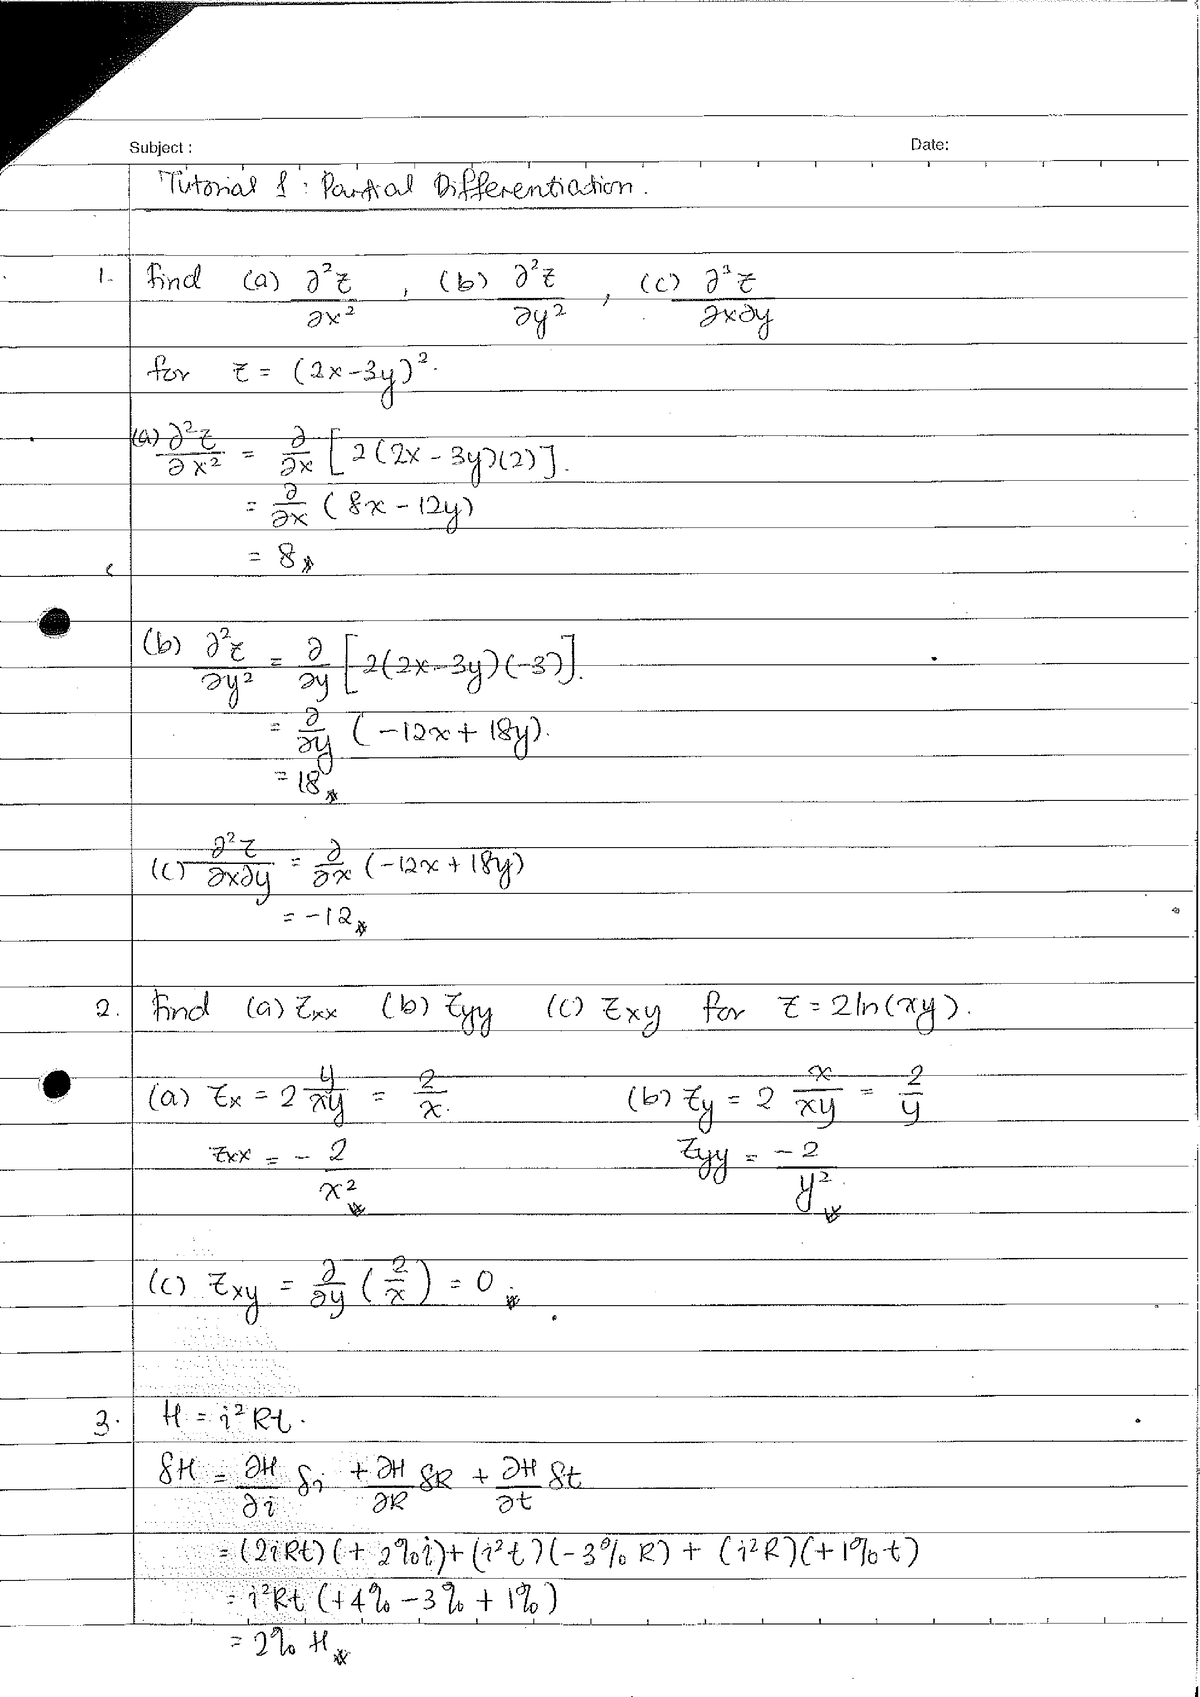 Subject :
Date:
Tutorial 1 : Partial Differentiation.
1. Find (a) ∂²z/∂x² , (b) ∂²z/∂y² , (c) ∂²z/∂x∂y
for z = (2x-3y)².
(a) ∂²z/∂x² = ∂/∂x [2(2x-3y)(2)].
= ∂/∂x (8x-12y)
= 8
(b) ∂²z/∂y² = ∂/∂y [2(2x-3y)(-3)].
= ∂/∂y (-12x+18y).
= 18
(c) ∂²z/∂x∂y = ∂/∂x (-12x+18y)
= -12
2. Find (a) Zxx (b) Zyy (c) Zxy for z = 2ln(xy).
(a) Zx = 2 y/xy = 2/x. (b) Zy = 2 x/xy = 2/y
Zxx = - 2/x² Zyy = -2/y²
(c) Zxy = ∂/∂y (2/x) = 0
3. H = i²Rt.
δH = ∂H/∂i δi + ∂H/∂R δR + ∂H/∂t δt
= (2iRt)(+2%i)+(i²t)(-3% R) + (i²R)(+1%t)
= i²Rt (+4% -3% + 1%)
= 2% H